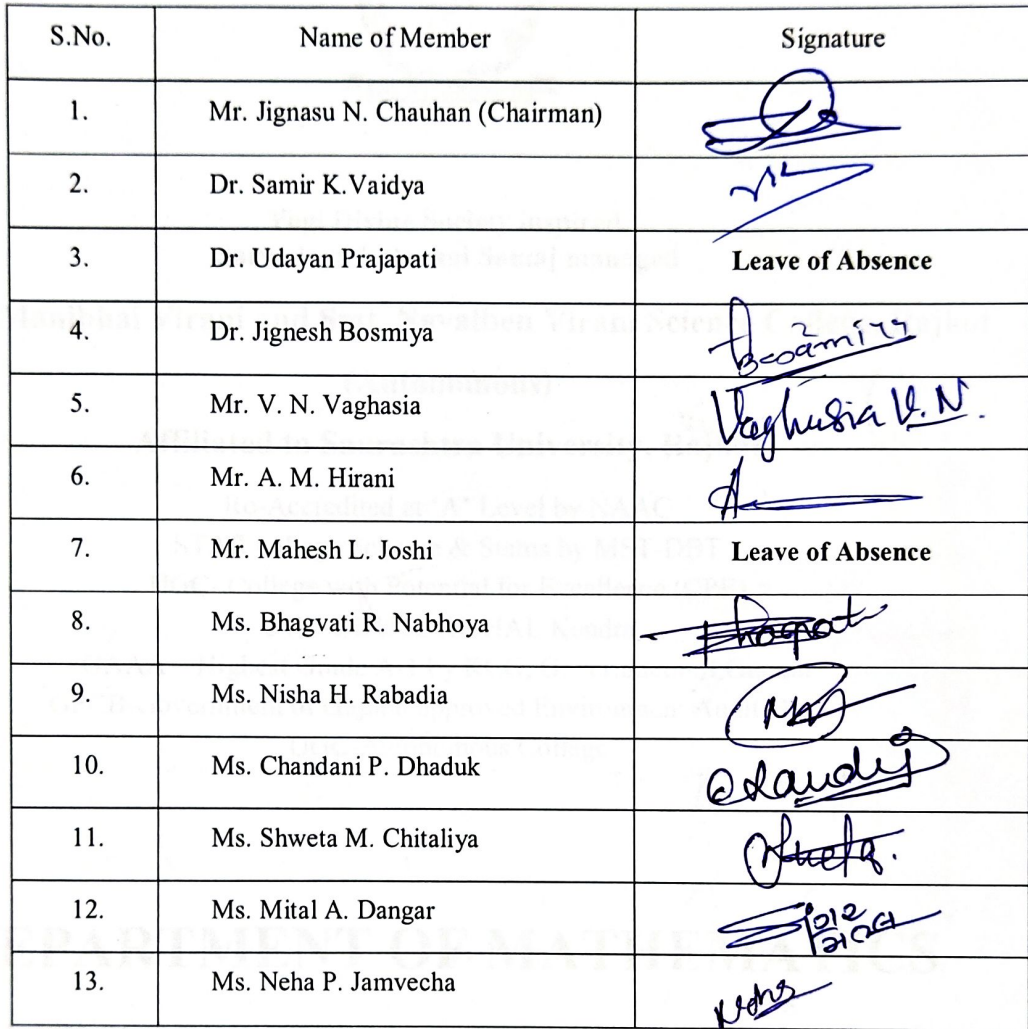 S.No. Name of Member Signature
1. Mr. Jignasu N. Chauhan (Chairman)
2. Dr. Samir K.Vaidya
3. Dr. Udayan Prajapati Leave of Absence
4. Dr. Jignesh Bosmiya
5. Mr. V. N. Vaghasia Vaghasia V.N.
6. Mr. A. M. Hirani
7. Mr. Mahesh L. Joshi Leave of Absence
8. Ms. Bhagvati R. Nabhoya
9. Ms. Nisha H. Rabadia
10. Ms. Chandani P. Dhaduk
11. Ms. Shweta M. Chitaliya
12. Ms. Mital A. Dangar
13. Ms. Neha P. Jamvecha